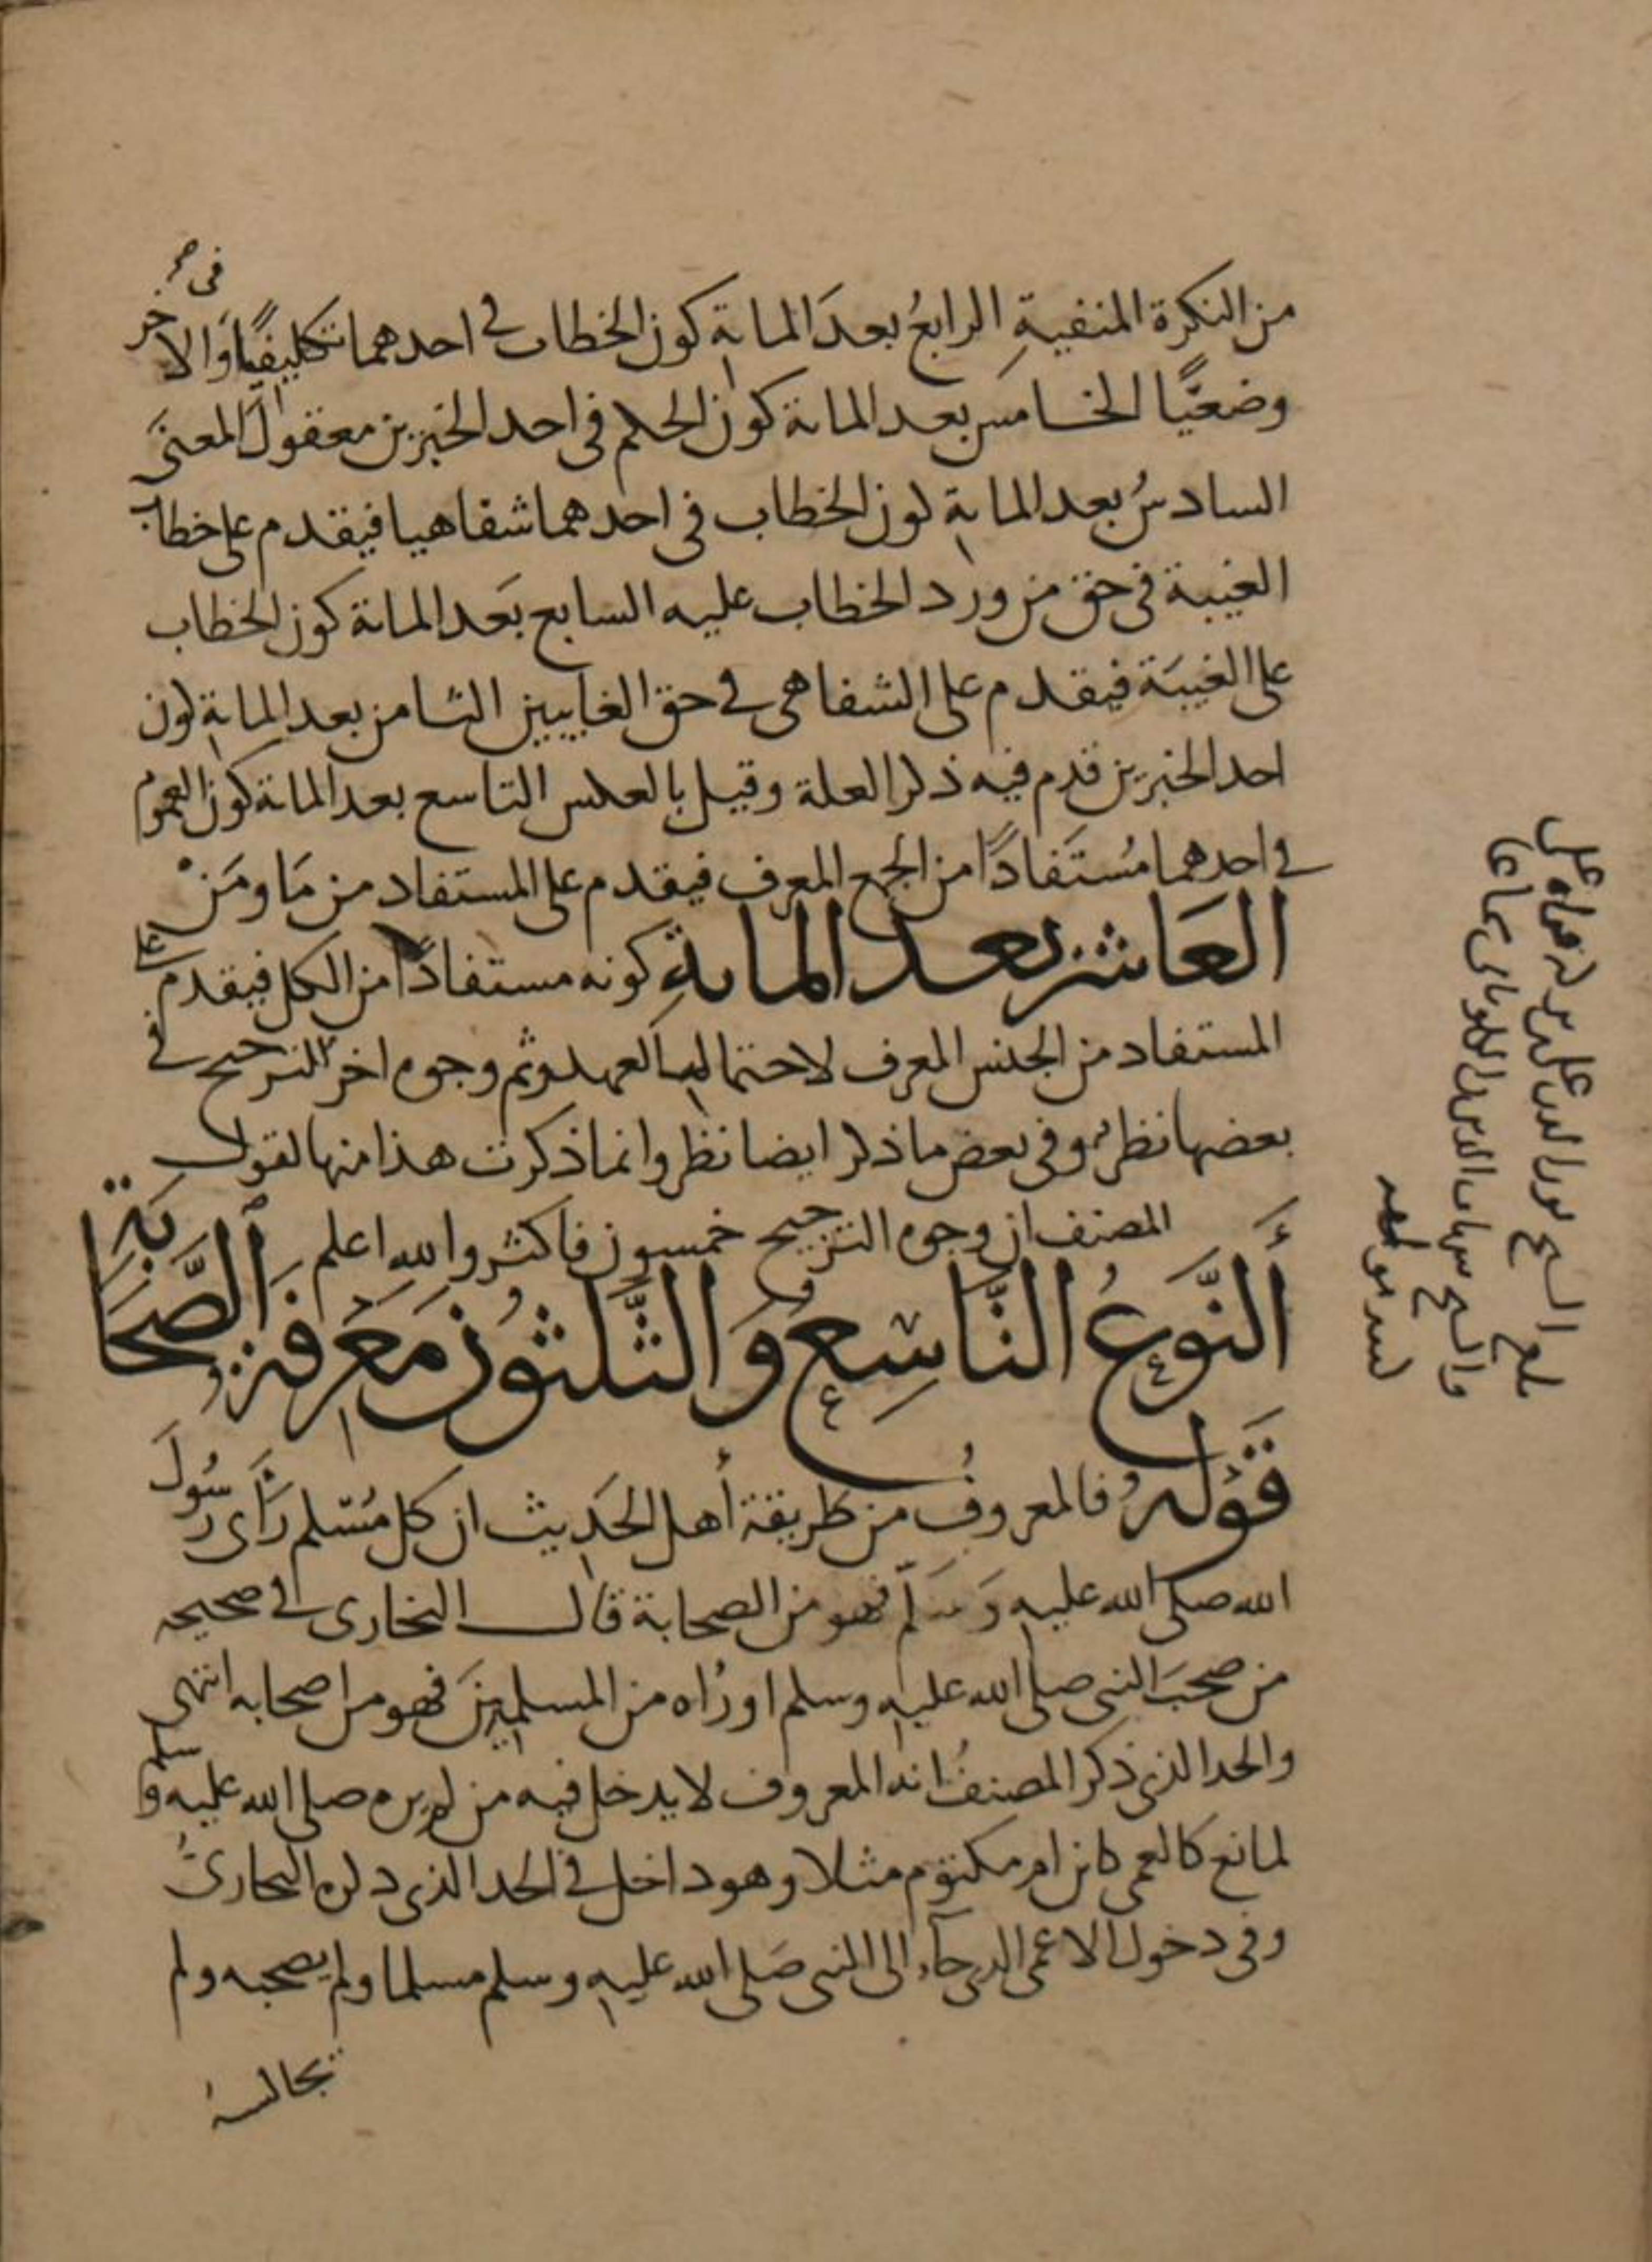 من النكرة المنفية الرابع بعد المائة كون الخطاب في احدهما تكليفيا والاخر
وضعيًّا الخامس بعد المائة كون الحكم في احد الخبرين معقول المعنى
السادسُ بعد المائة كون الخطاب في احدهما شفاهيا فيقدم على خطاب
الغيبة في حق من ورد الخطاب عليه السابع بعد المائة كون الخطاب
على الغيبة فيقدم على الشفاهي في حق الغايبين الثامن بعد المائة كون
احد الخبرين قدم فيه ذكر العلة وقيل بالعكس التاسع بعد المائة كون العموم
في احدهما مُستفادًا من الجمع المعرف فيقدم على المستفاد من مَا ومَنْ
العَاشر بعد المائةِ كونه مستفادًا من الكل فيقدم على
المستفاد من الجنس المعرف لاحتمال العهد وثم وجوه اخر للترجيح في
بعضها نظر وفي بعض ما ذكر ايضا نظر وانما ذكرت هذا منها لقول
المصنف ان وجوه الترجيح خمسون فاكثر والله اعلم
أَلنَّوعُ التَّاسِعُ وَالثَّلثُون مَعْرِفَة الصَّحَابَة
قَوْلهُ فالمعروفُ من طريقة أهل الحَدِيث ان كل مُسْلم رَأى رسُولَ
الله صلى الله عليه وَسَلّم فهو من الصحابة قال البخارى في صحيحه
من صحبَ النبي صلى الله عليه وسلم او رآه من المسلمينَ فهو من اصحابه انتهى
والحد الذي ذكر المصنفُ انه المعروف لا يدخل فيه من لم يره صلى الله عليه وسلم
لمانع كالعمى كابن ام مكتوم مثلا وهو داخل في الحد الذي ذكره البخارىُّ
وفي دخول الاعمى الذي جآء الى النبي صَلى الله عليه وسلم مسلما ولم يصحبه ولم
يجالسه